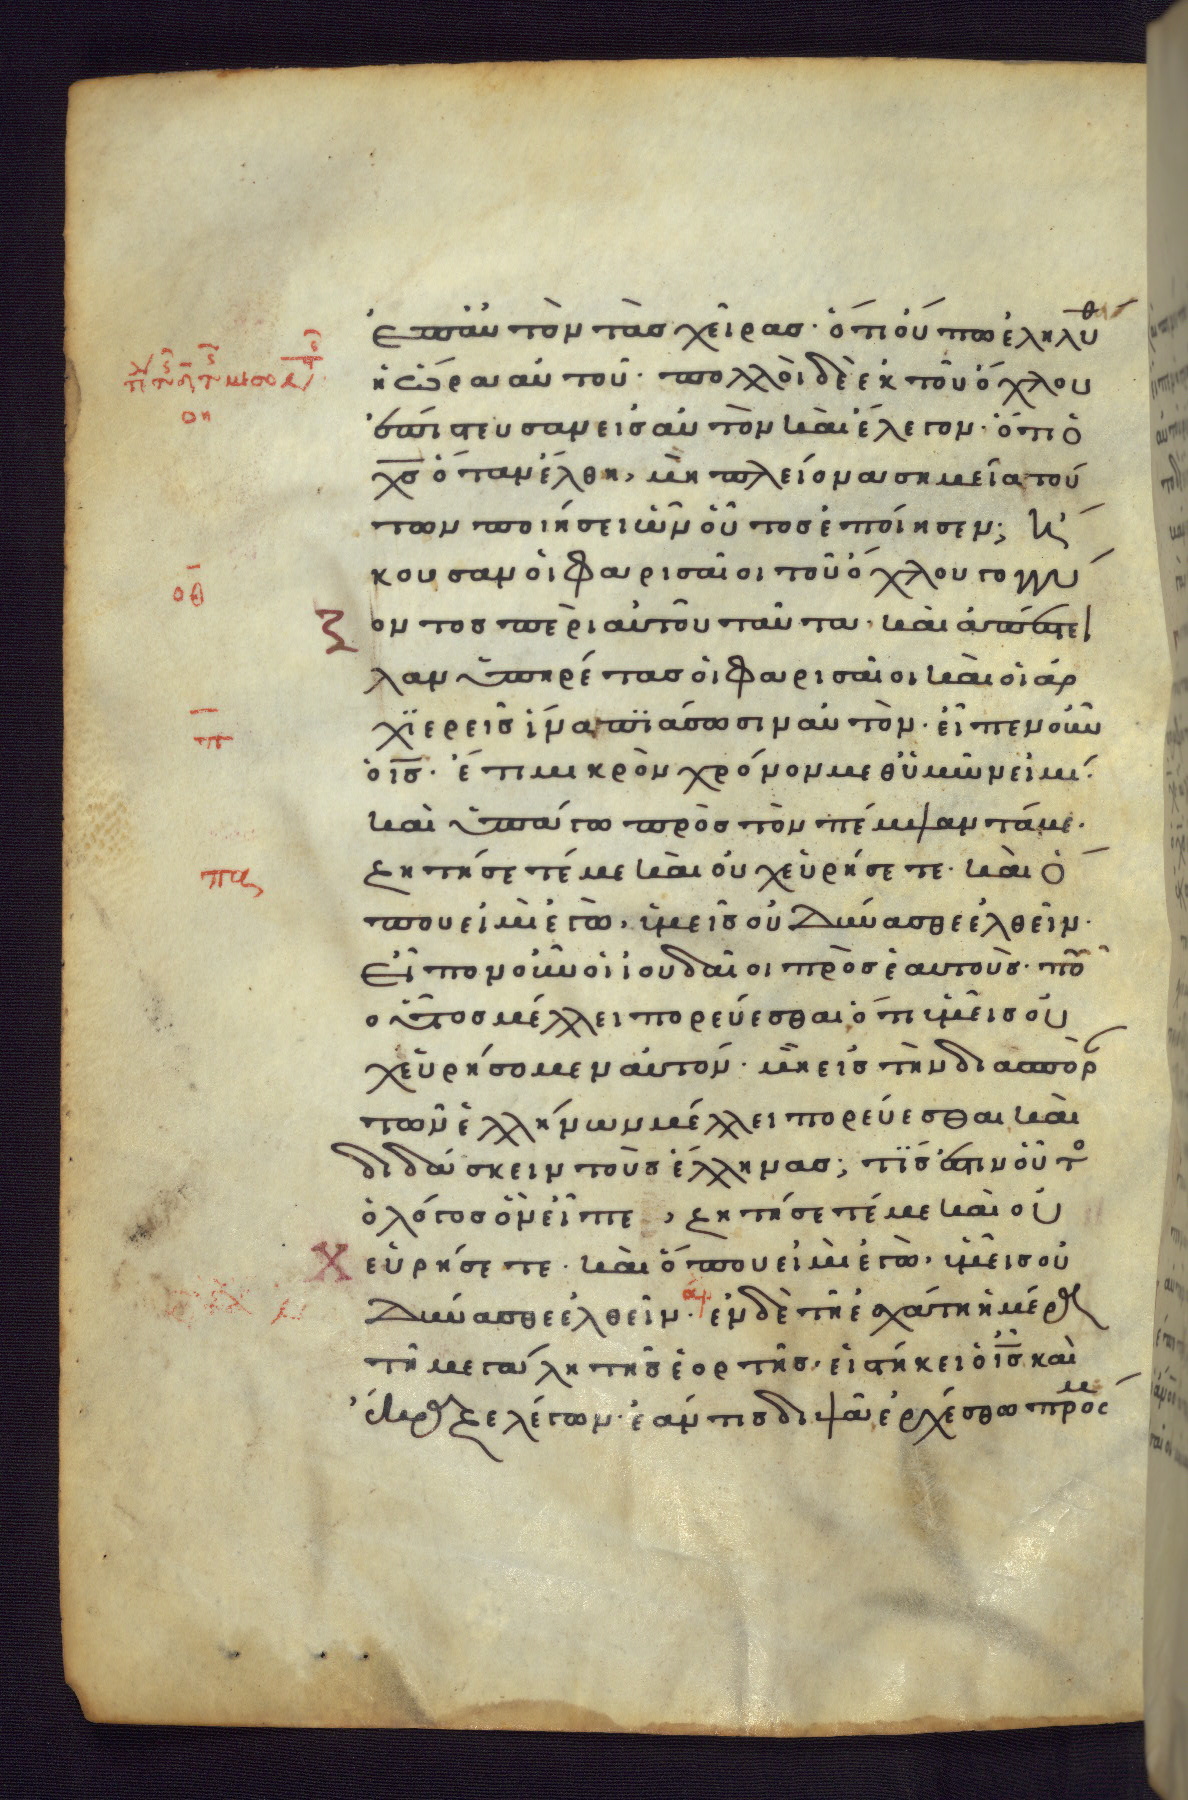 ἐπ' αὐτὸν τὰς χεῖρας· ὅτι οὔπω ἐληλύθ
ἡ ὥρα αὐτοῦ· πολλοὶ δὲ ἐκ τοῦ ὄχλου
οη
ἐπίστευσαν εἰς αὐτὸν καὶ ἔλεγον· ὅτι ὁ
χ̅ς̅ ὅταν ἔλθη, μὴ πλείονα σημεῖα τού
των ποιήσει ὧν οὗτος ἐποίησεν; ἤ
κουσαν οἱ φαρισαῖοι τοῦ ὄχλου γογγύ
οθ
ζ οντος περὶ αὐτοῦ ταῦτα· καὶ ἀπέστει
λαν ὑπηρέτας οἱ φαρισαῖοι καὶ οἱ ἀρ
χϊερεῖς ἵνα πϊάσωσιν αὐτὸν· εἶπεν οὖν
π
ὁ ι̅ς̅· ἔτι μικρὸν χρόνον μεθ ὑμῶν εἰμί·
καὶ ὑπάγω πρὸς τὸν πέμψαντά με·
πα
ζητήσετέ με καὶ οὐχ εὑρήσετε· καὶ ὅ
που εἰμὶ ἐγὼ, ὑμεῖς οὐ δύνασθε ἐλθεῖν·
Εἶπον οὖν οἱ ἰουδαῖοι πρὸς ἑαυτοὺς· ποῦ
οὗτος μέλλει πορεύεσθαι ὅτι ἡμεῖς οὐ
χ εὑρήσομεν αὐτόν· μὴ εἰς τὴν διασπορ
τῶν ἑλλήνων μέλλει πορεύεσθαι καὶ
διδάσκειν τοὺς ἕλληνας; τΐς ἐστιν οὗτο
ὁ λόγος ὃν εἶπε, ζητήσετέ με καὶ οὐ
χ εὑρήσετε· καὶ ὅπου εἰμὶ ἐγὼ, ὑμεῖς οὐ
δύνασθε ἐλθεῖν· ἀρ ἐν δὲ τῆ ἐσχάτη ἡμέρα
τῆ μεγάλη τῆς ἑορτῆς· εἱστήκει ὁ ι̅ς̅ καὶ
ἔκραξε λέγων· ἐάν τις διψᾶ ἐρχέσθω πρός με